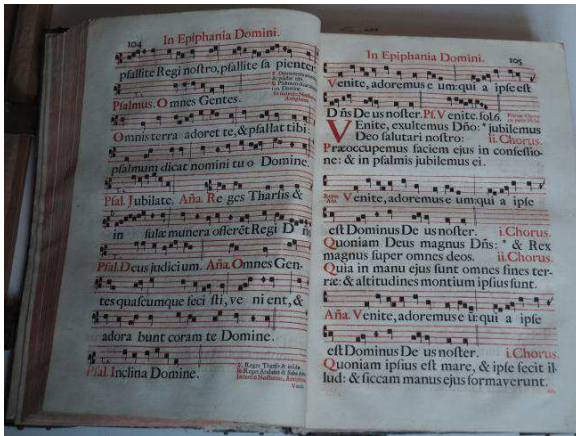 104 In Epiphania Domini.
psallite Regi nostro, psallite sa pienter
Psalmus. Omnes Gentes.
Omnis terra adoret te, & psallat tibi:
psalmum dicat nomini tuo Domine.
Psal. Jubilate. Aña. Reges Tharsis &
in sulæ munera offerēt Regi D ño
Psal. Deus judicium. Aña. Omnes Gen-
tes quascumque feci sti, ve ni ent, &
adora bunt coram te Domine.
Psal. Inclina Domine.
℣. Reges Tharsis & insulæ
In Epiphania Domini. 105
Venite, adoremus e um: qui a ipse est
D ñs De us noster. Ps. Venite. fol. 6.
VEnite, exultemus Dño: * jubilemus
Deo salutari nostro: ii. Chorus.
Præoccupemus faciem ejus in confessio-
ne: & in psalmis jubilemus ei.
Venite, adoremus e um: qui a ipse
est Dominus De us noster. i. Chorus.
Quoniam Deus magnus Dñs: * & Rex
magnus super omnes deos. ii. Chorus.
Quia in manu ejus sunt omnes fines ter-
ræ: & altitudines montium ipsius sunt.
Aña. Venite, adoremus e ū: qui a ipse
est Dominus De us noster. i. Chorus.
Quoniam ipsius est mare, & ipse fecit il-
lud: & siccam manus ejus formaverunt.